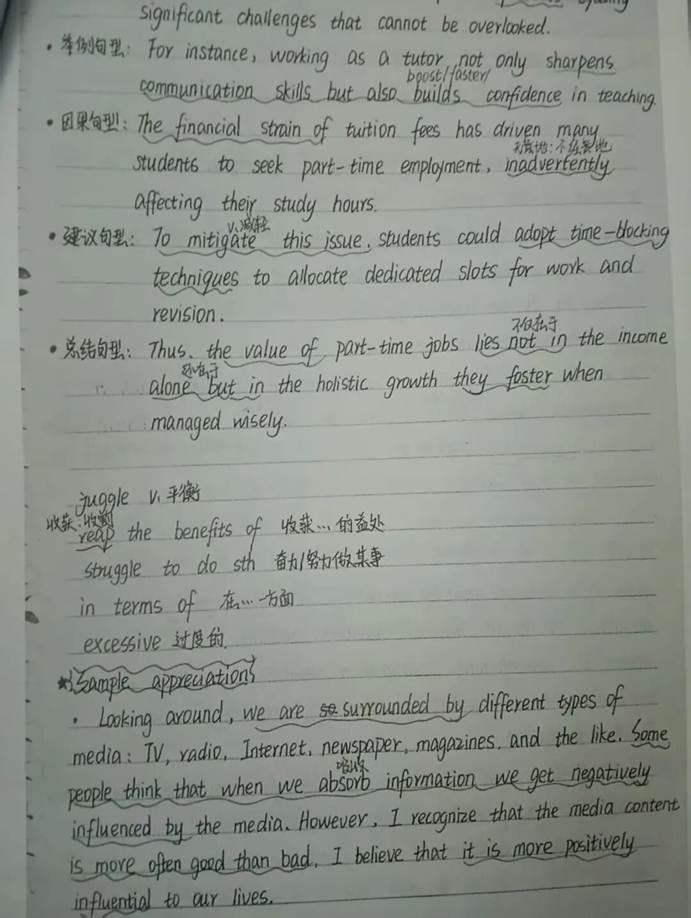 significant challenges that cannot be overlooked.
• 举例句型: For instance, working as a tutor not only sharpens
boost/foster/
communication skills but also builds confidence in teaching.
• 因果句型: The financial strain of tuition fees has driven many
students to seek part-time employment, inadvertently
affecting their study hours.
v.减轻
• 建议句型: To mitigate this issue, students could adopt time-blocking
techniques to allocate dedicated slots for work and
revision.
不仅在于
• 总结句型: Thus, the value of part-time jobs lies not in the income
还在于
alone but in the holistic growth they foster when
managed wisely.
juggle v. 平衡
收获;收割
reap the benefits of 收获...的益处
struggle to do sth 奋力/努力做某事
in terms of 在...方面
excessive 过度的
*Sample appreciation
• Looking around, we are surrounded by different types of
media: TV, radio, Internet, newspaper, magazines, and the like. Some
吸收
people think that when we absorb information we get negatively
influenced by the media. However, I recognize that the media content
is more often good than bad. I believe that it is more positively
influential to our lives.